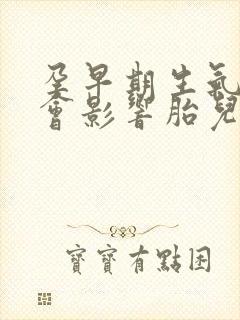 孕早期生氣
會影響胎兒
寶寶有點困